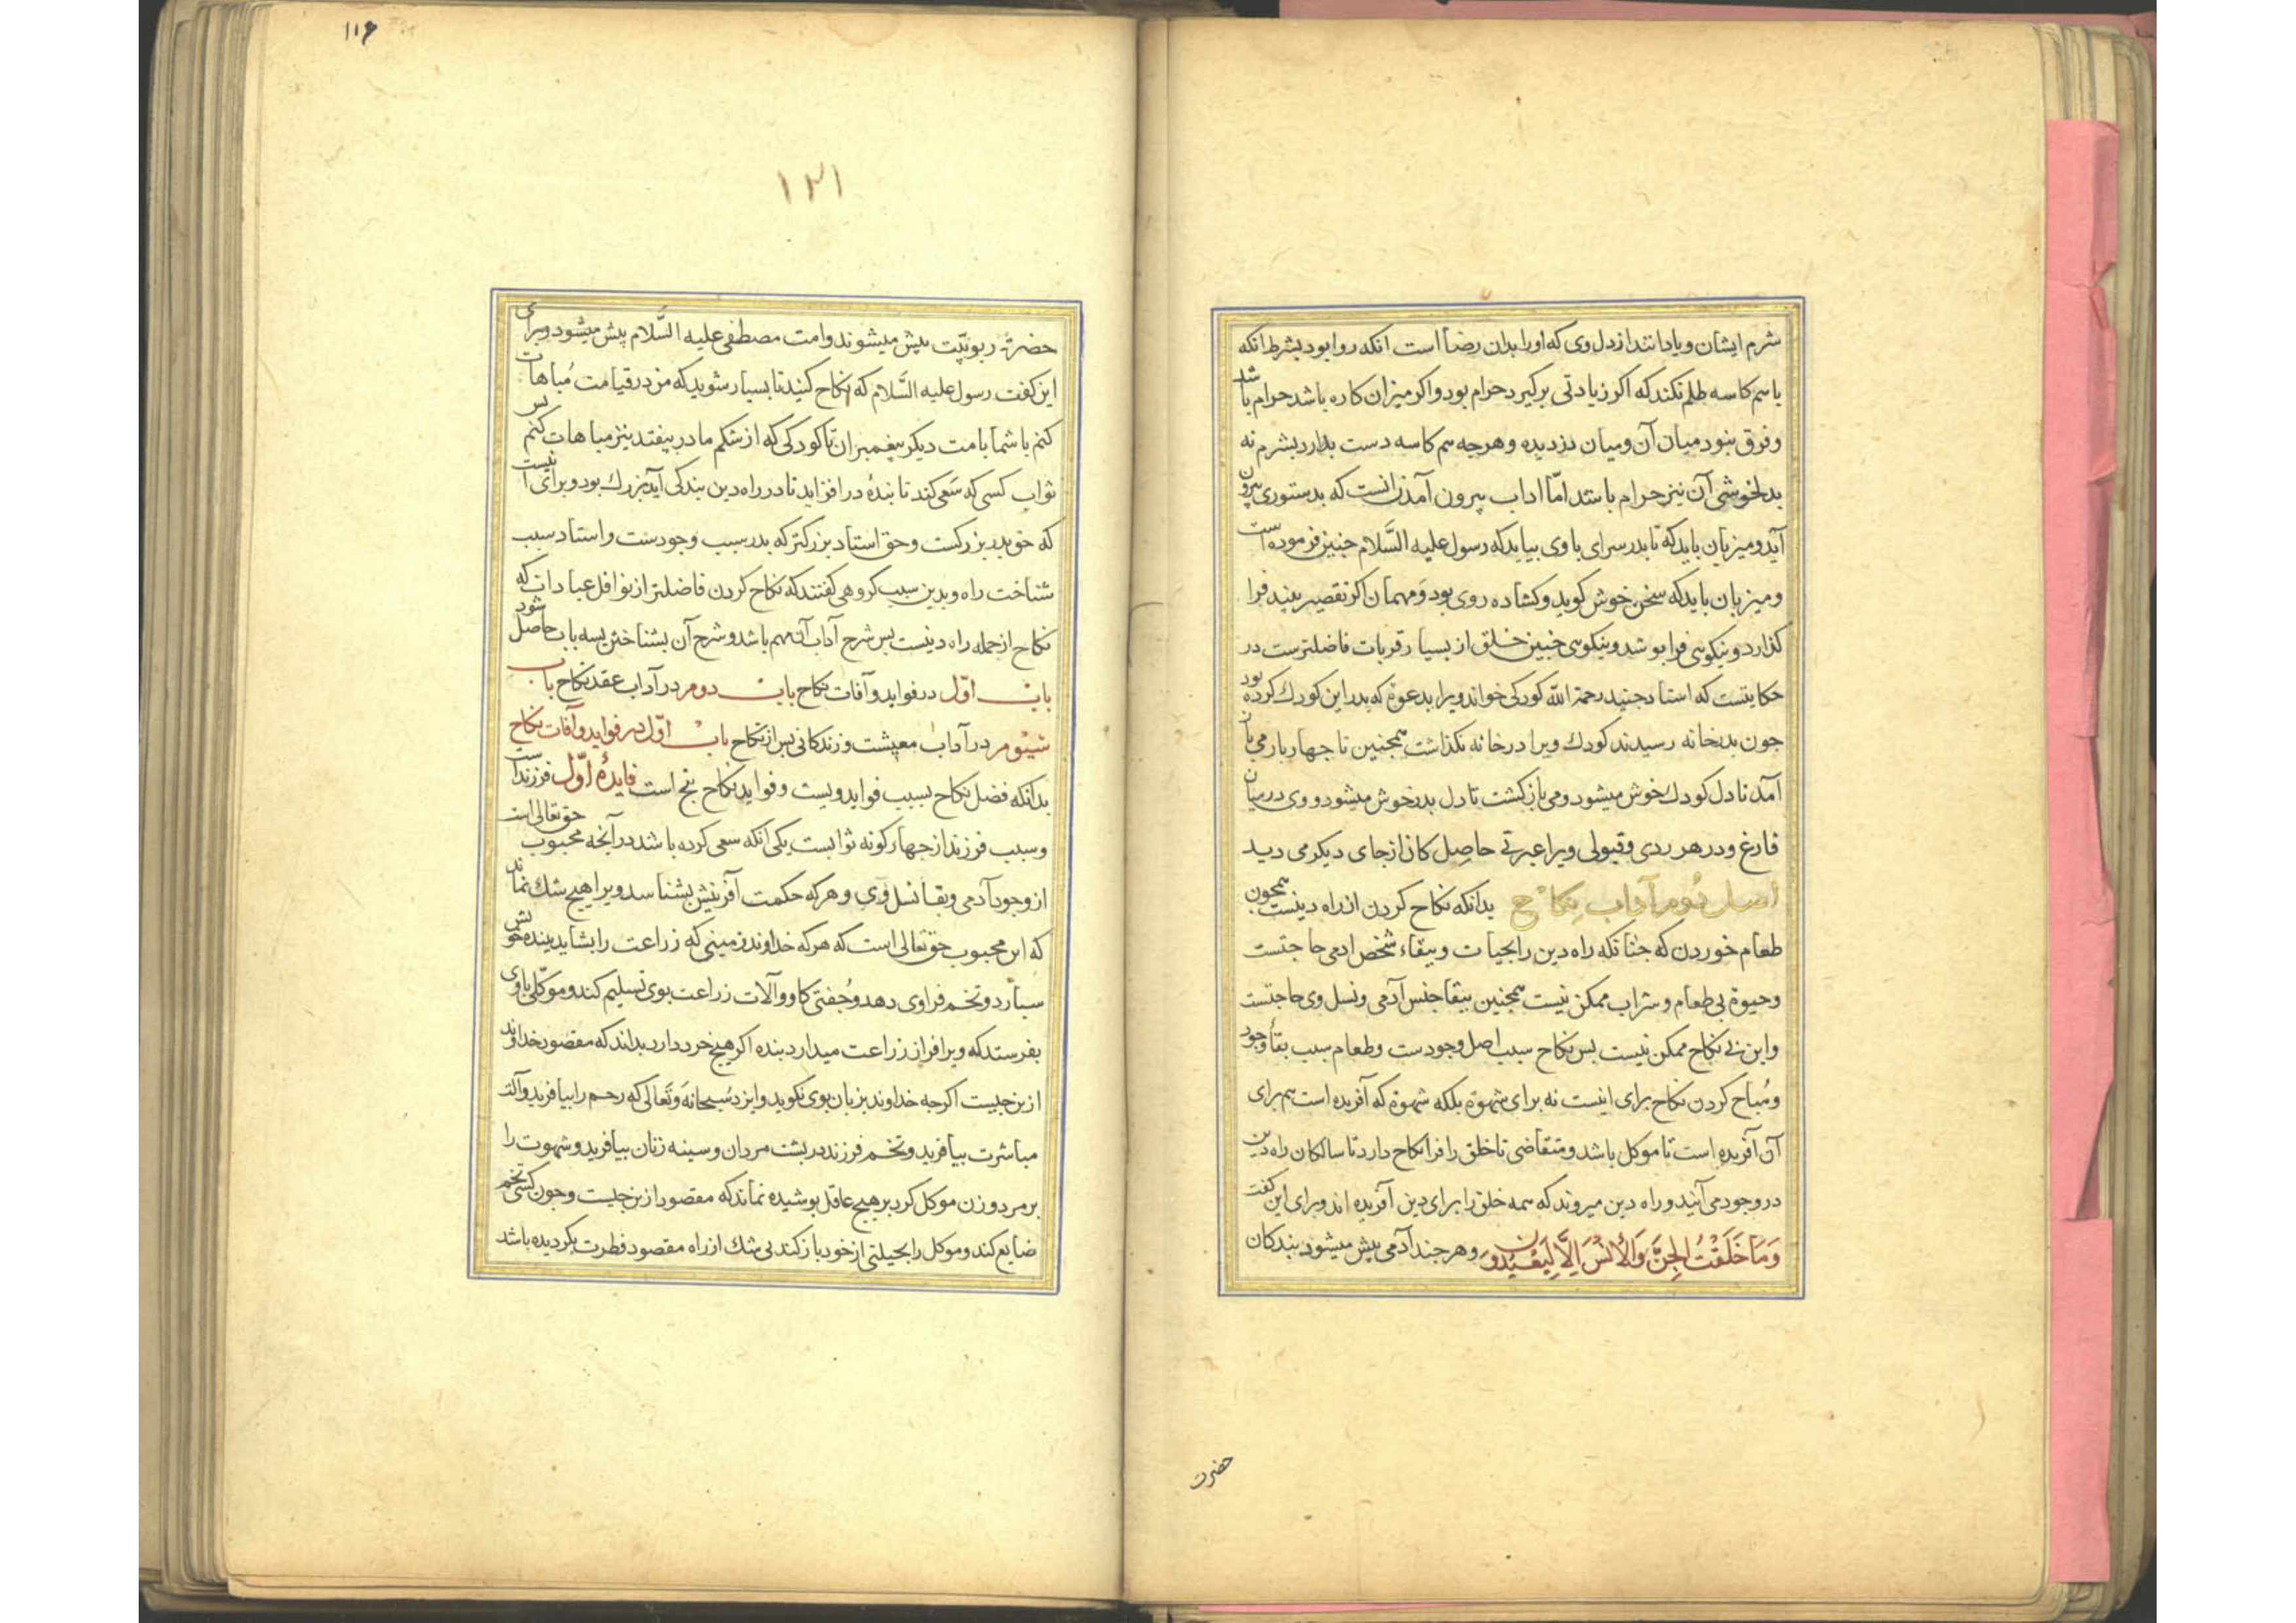 شرم ایشان و یا دانند از دل وی که او را بدان رضا است آنکه روا بود بشرط آنکه
با هم کاسه ظلم نکند که اکر زیادتی برکیرد حرام بود و اکر میزبان کاره باشد حرام باشد
و فرق نبود میان آن و میان دزدیده و هرجه هم کاسه دست بدارد بشرم نه
بدلخوشی آن نیز حرام باشد اما اداب بیرون آمدن انست که بدستوری بیرون
آید و میزبان باید که تا بدر سرای با وی بیاید که رسول علیه السَّلام جنین فرموده است
و میزبان باید که سخن خوش کوید و کشاده روی بود و مهمان اکر تقصیر بیند فرا
کذارد و بنیکویی فرا بوشد و نیکویی جنین خلق از بسیار قربات فاضلترست در
حکایتست که استاد جنید رحمة الله کودکی خواند ویرا بدعوة که بدر این کودک کرده بود
جون بدر خانه رسیدند کودک ویرا در خانه نکذاشت همجنین تا جهار بار می باز
آمد تا دل کودک خوش میشود و می باز کشت تا دل بدر خوش میشود و وی در میان
فارغ و در هر ردی و قبولی ویرا عبرتی حاصل کان از جای دیکر می دید
اصل دوم آداب نکاح بدانکه نکاح کردن از راه دینست همجون
طعام خوردن که جنانکه راه دین را بحیات و ببقاء شخص ادمی حاجتست
و حیوة بی طعام و شراب ممکن نیست همجنین ببقا جنس آدمی و نسل وی حاجتست
و این بی نکاح ممکن نیست بس نکاح سبب اصل وجودست و طعام سبب بقاء وجود
و مُباح کردن نکاح برای اینست نه برای شهوة بلکه شهوة که آفریده است هم برای
آن آفریده است تا موکل باشد و متقاضی تا خلق را فرا نکاح دارد تا سالکان راه دین
در وجود می آیند و راه دین میروند که همه خلق را برای دین آفریده اند و برای این کفت
وَمَا خَلَقْتُ الْجِنَّ وَالْأِنْسَ اِلَّا لِيَعْبُدُونِ و هر جند آدمی بیش میشود بندکان
حضرت
۱۱۶
۱۲۱
حضرة ربوبیّت بیش میشوند و امت مصطفی علیه السَّلام بیش میشود و برای
این کفت رسول علیه السَّلام که نکاح کنید تا بسیار شوید که من در قیامت مُباهات
کنم با شما با امت دیکر بیغمبران تا کودکی که از شکم مادر بیفتد نیز مباهات کنم بس
ثواب کسی که سَعی کند تا بندهٔ در افزاید تا در راه دین بندکی آید بزرک بود و برای اینست
که حق بدر بزرکست و حق استاد بزرکتر که بدر سبب وجودست و استاد سبب
شناخت راه و بدین سبب کروهی کفتند که نکاح کردن فاضلتر از نوافل عبادات که
نکاح از جمله راه دینست بس شرح آداب آن مهم باشد و شرح آن بشناختن بسه باب حاصل شود
باب اوّل در فواید و آفات نکاح باب دوم در آداب عقد نکاح باب
سیوم در آداب معیشت و زندکانی بس از نکاح باب اوّل در فواید و آفات نکاح
بدانکه فضل نکاح بسبب فواید ویست و فواید نکاح بنج است فایدهٔ اوّل فرزند است
و سبب فرزند از جهار کونه ثوابست یکی انکه سعی کرده باشد در آنجه محبوب حق تعالی است
از وجود آدمی و بقا نسل وی و هرکه حکمت آفرینش بشناسد ویرا هیج شک نماند
که این محبوب حق تعالی است که هرکه خداوند زمینی که زراعت را بشاید ببنده خویش
سبارد و تخم فرا وی دهد و جُفتی کاو و آلات زراعت بوی تسلیم کند و موکلی با وی
بفرستد که ویرا فراز زراعت میدارد بنده اکر هیج خرد دارد بداند که مقصود خداوند
ازین جیست اکرجه خداوند بزبان بوی نکوید و ایزد سُبحانهَ وتَعالی که رحم را بیافرید و آلت
مباشرت بیافرید و تخم فرزند در بشت مردان و سینه زنان بیافرید و شهوت را
بر مرد و زن موکل کرد بر هیج عاقل بوشیده نماند که مقصود ازین جیست و جون کسی تخم
ضایع کند و موکل را بحیلتی از خود باز کند بی شک از راه مقصود فطرت بکردیده باشد